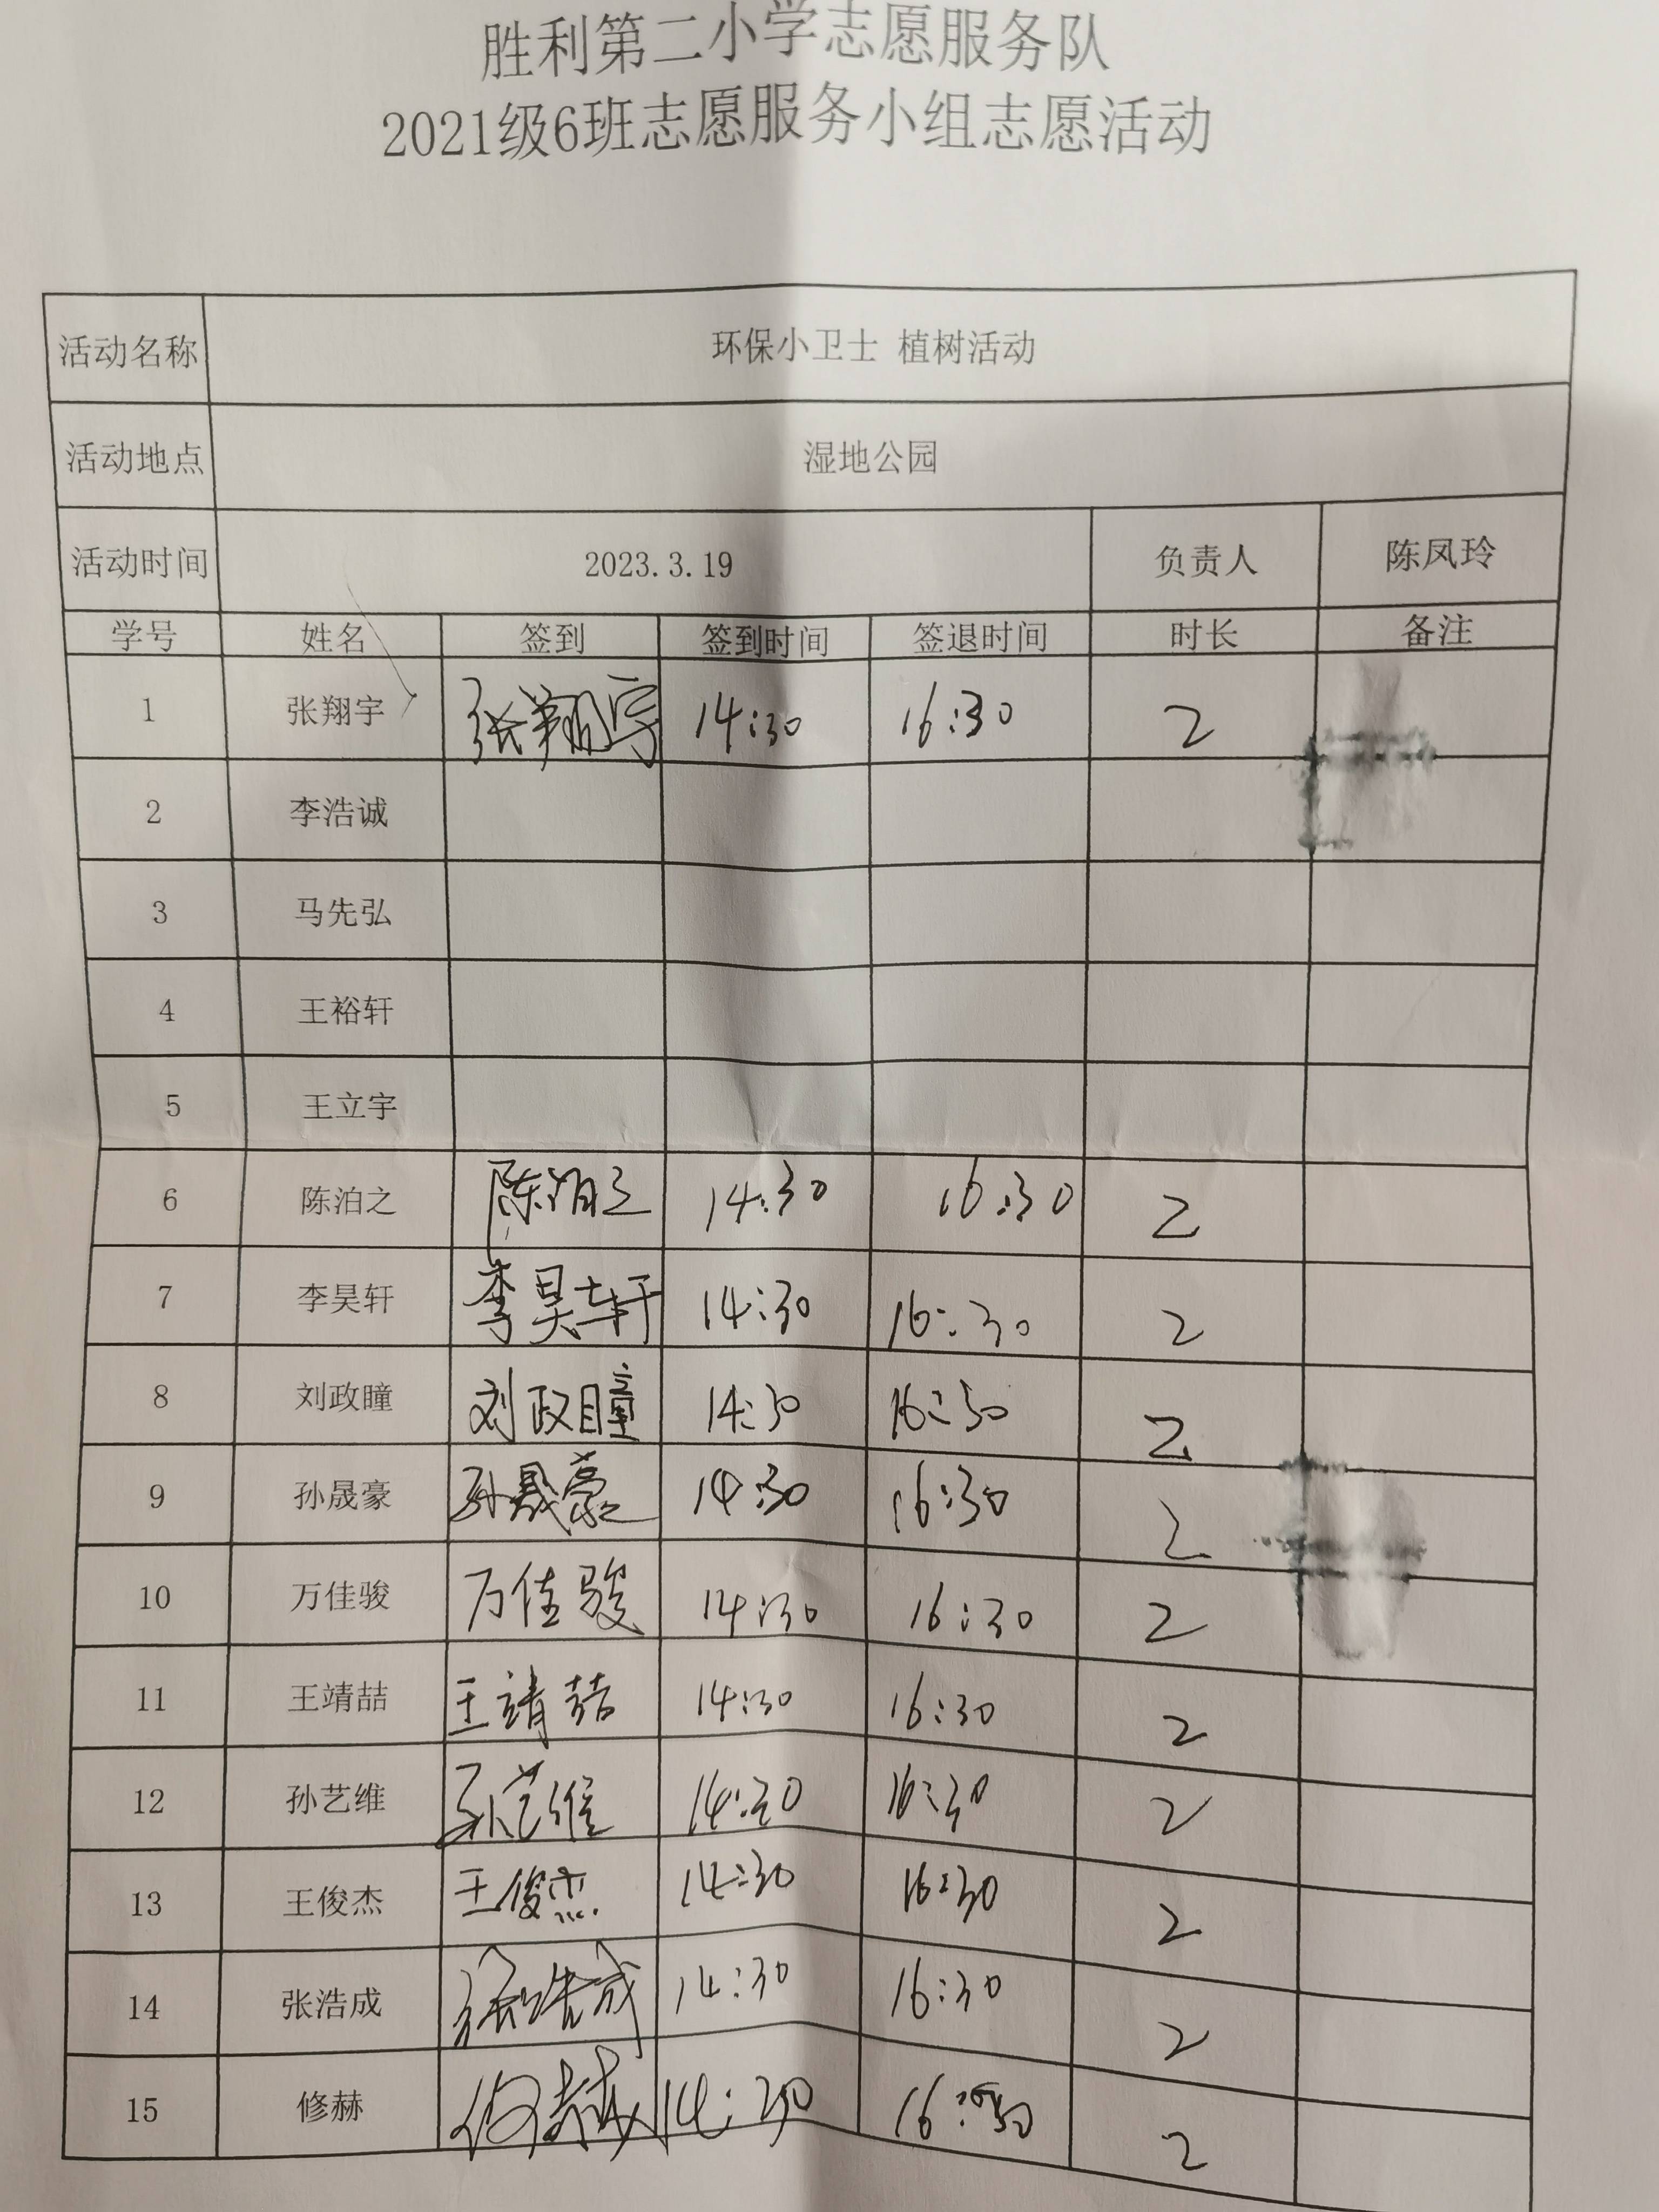 胜利第二小学志愿服务队
2021级6班志愿服务小组志愿活动
活动名称 环保小卫士 植树活动
活动地点 湿地公园
活动时间 2023.3.19 负责人 陈凤玲
学号 姓名 签到 签到时间 签退时间 时长 备注
1 张翔宇 张翔宇 14:30 16:30 2
2 李浩诚
3 马先弘
4 王裕轩
5 王立宇
6 陈泊之 陈泊之 14:30 16:30 2
7 李昊轩 李昊轩 14:30 16:30 2
8 刘政瞳 刘政瞳 14:30 16:30 2
9 孙晟豪 孙晟豪 14:30 16:30 2
10 万佳骏 万佳骏 14:30 16:30 2
11 王靖喆 王靖喆 14:30 16:30 2
12 孙艺维 孙艺维 14:30 16:30 2
13 王俊杰 王俊杰 14:30 16:30 2
14 张浩成 张浩成 14:30 16:30 2
15 修赫 修赫 14:30 16: 2